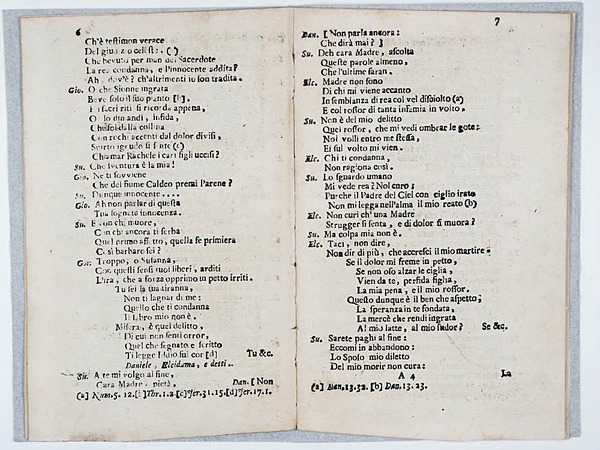 6
Ch'è testimon verace
Del giudizio celeste: ( )
Che bevuto per man del Sacerdote
La rea condanna, e l'innocente addita?
Ah, dov'è? ch'altrimenti io son tradita.
Gio. O che Sionne ingrata
Beve solo il suo pianto [b].
E i sacri riti si ricorda appena,
O lo din andi, infida,
Che sol dalla collina
Con rochi accenti dal dolor divisi,
Spirto ignudo si sente (c)
Chiamar Rachele i cari figli uccisi?
Su. Che sventura è la mia!
Gio. Ne ti sovviene
Che del fiume Caldeo premi l'arene?
Su. Dunque innocente....
Gio. Ah non parlar di questa
Tua sognata innocenza.
Su. E con chi muore,
Con chi ancora si serba
Quel primo affetto, quella fe primiera
Così barbaro sei?
Gio. Troppo, o Susanna,
Con questi sensi tuoi liberi, arditi
L'ira, che a forza opprimo in petto irriti.
Tu sei la tua tiranna,
Non ti lagnar di me:
Quello che ti condanna
Il labro mio non è.
Misera, è quel delitto,
Di cui non senti orror,
Quel che segnato e scritto
Ti legge Iddio sul cor [d] Tu &c.
Daniele, Elcidama, e detti.
Su. A te mi volgo al fine,
Cara Madre, pietà. Dan. [Non
(a) Num. 5. 12. [b] Thr. 1. 2. [c] Jer. 31. 15. [d] Jer. 17. 1.
7
Dan. [Non parla ancora:
Che dirà mai?]
Su. Deh cara Madre, ascolta
Queste parole almeno,
Che l'ultime saran.
Elc. Madre non sono
Di chi mi viene accanto
In sembianza di rea col vel disciolto (a)
E col rossor di tanta infamia in volto.
Su. Non è del mio delitto
Quel rossor, che mi vedi ombrar le gote:
Noi volli entro me stessa,
Ei sul volto mi vien.
Elc. Chi ti condanna,
Non ragiona così.
Su. Lo sguardo umano
Mi vede rea? Nol curo;
Purche il Padre del Ciel con ciglio irato
Non mi legga nell'alma il mio reato (b)
Elc. Non curi ch'una Madre
Strugger si senta, e di dolor si muora?
Su. Ma colpa mia non è.
Elc. Taci, non dire,
Non dir di più, che accresci il mio martire:
Se il dolor mi freme in petto,
Se non oso alzar le ciglia,
Vien da te, perfida figlia,
La mia pena, e il mio rossor.
Questo dunque è il ben che aspetto,
La speranza in te fondata,
La mercè che rendi ingrata
Al mio latte, al mio sudor? Se &c.
Su. Sarete paghi al fine:
Eccomi in abbandono:
Lo Sposo mio diletto
Del mio morir non cura:
A 4 La
(a) Dan. 13. 32. [b] Dan. 13. 23.